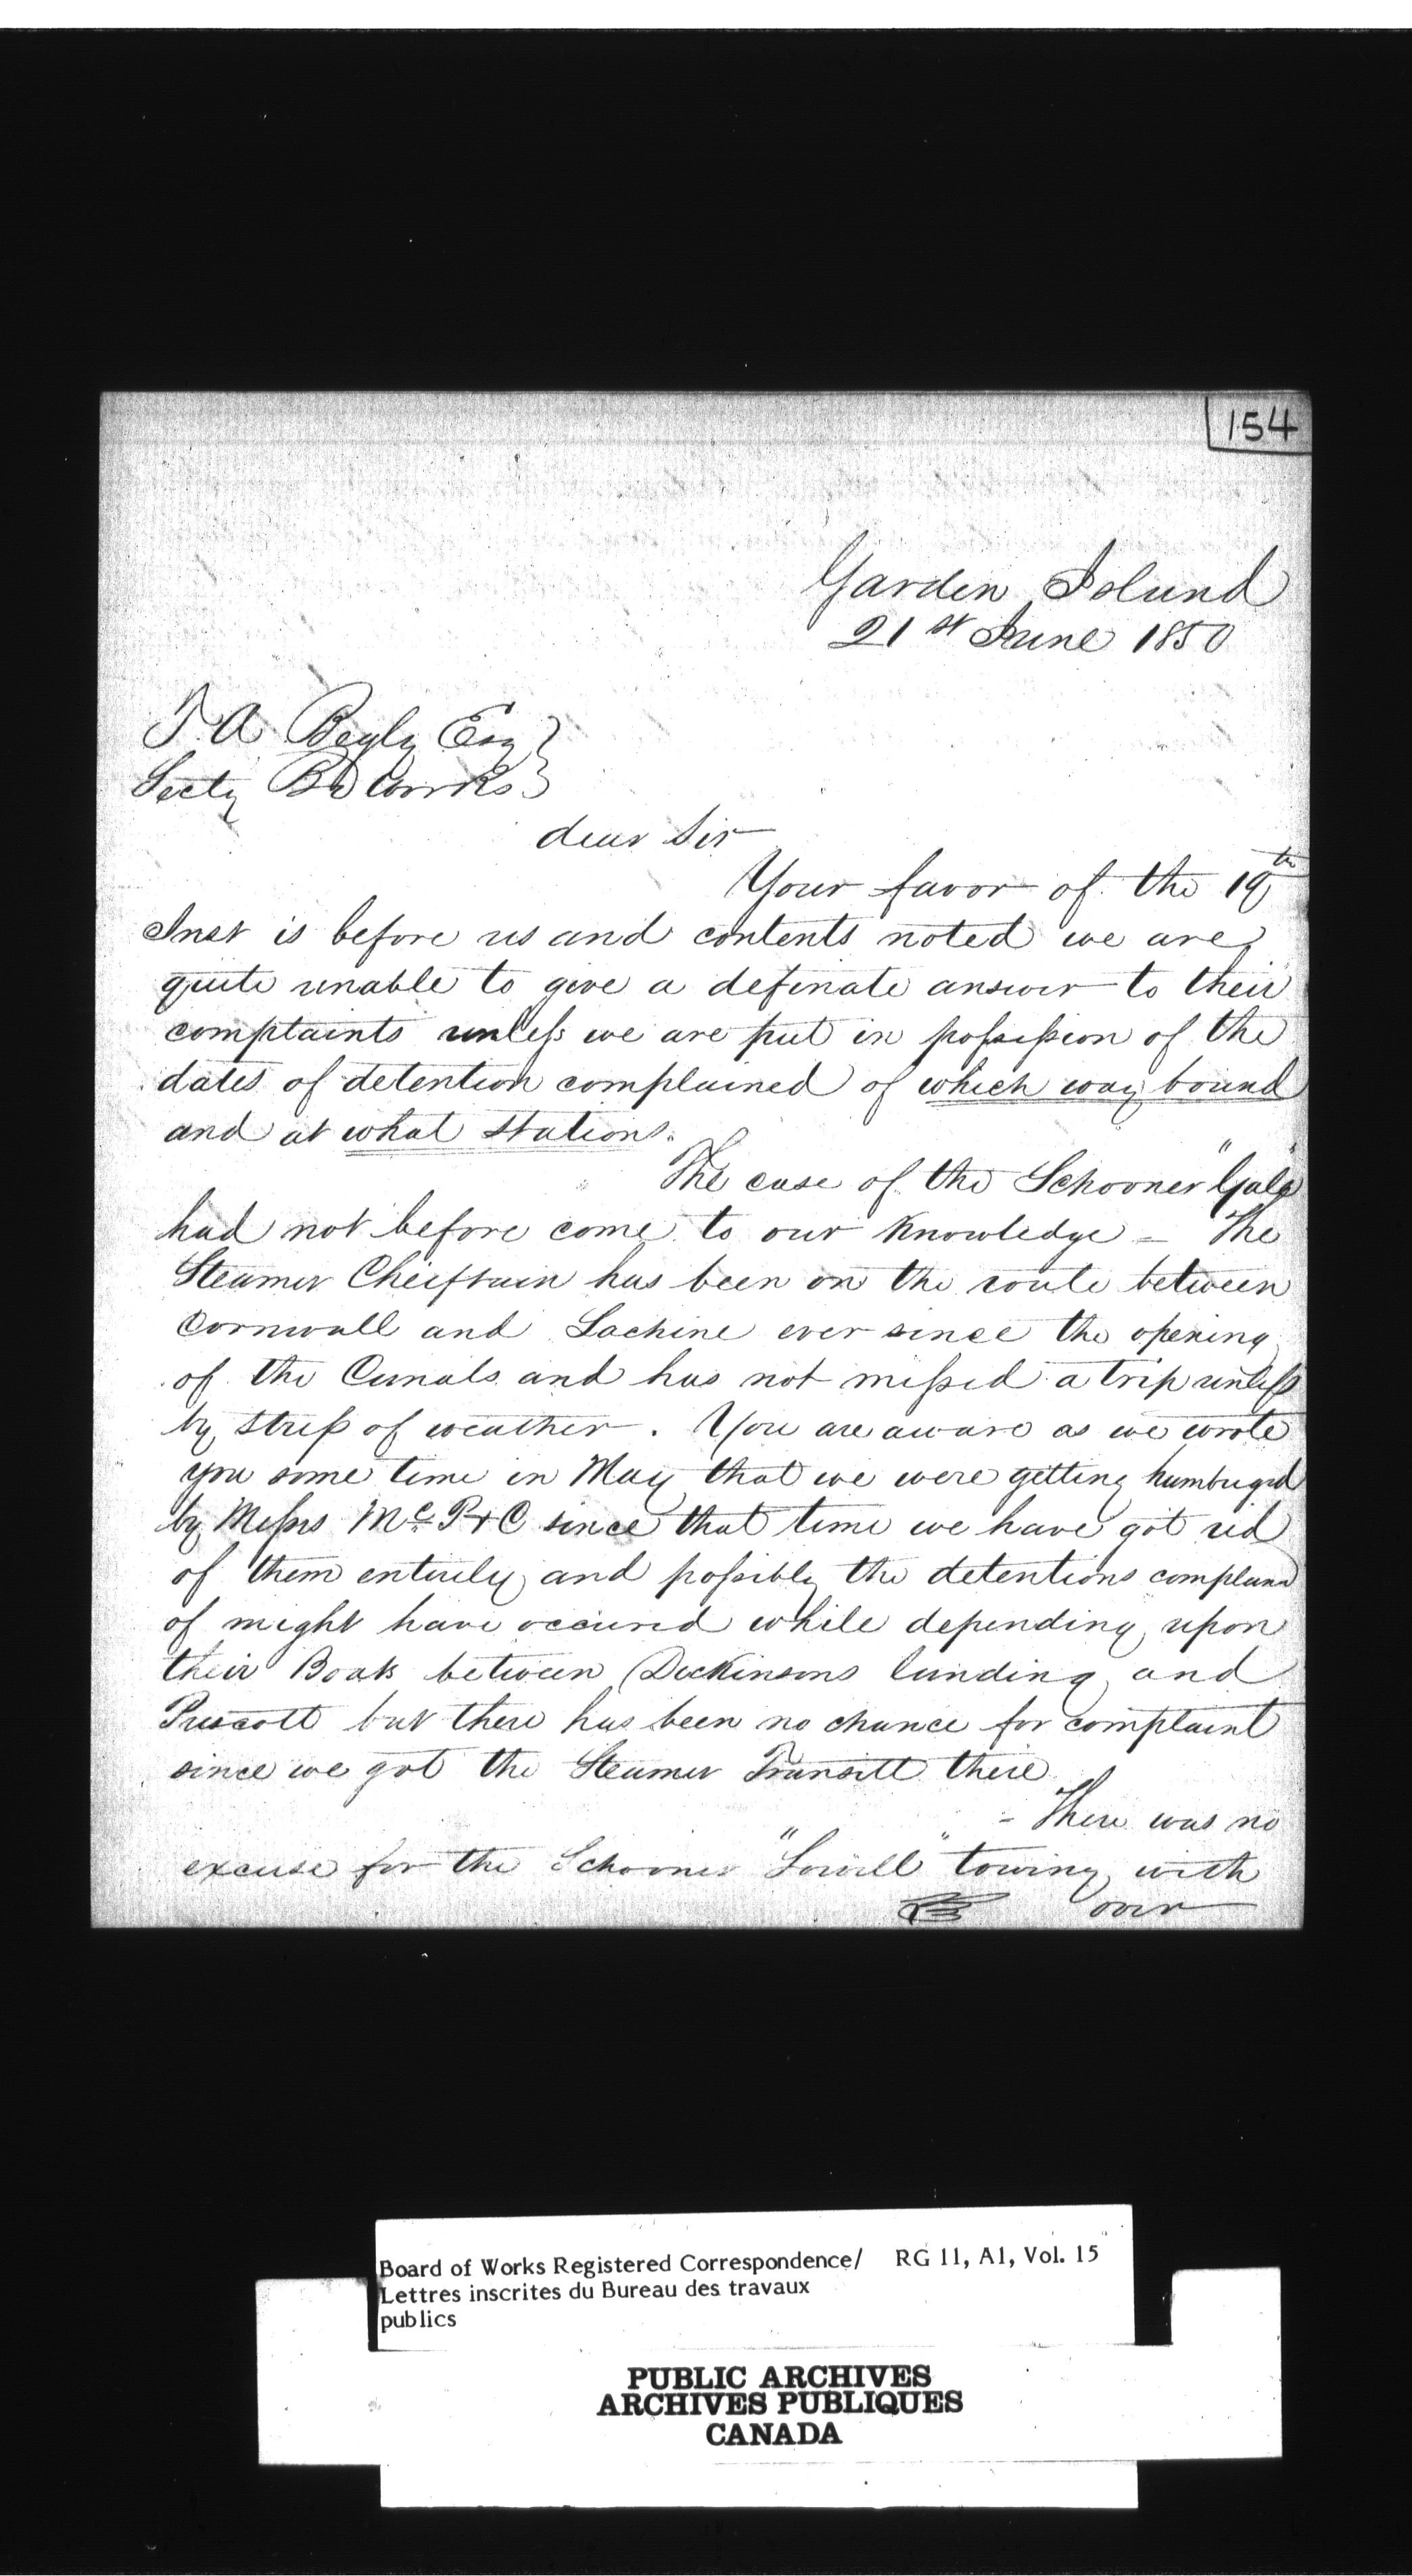 154
Garden Island
21st June 1850
T. A Begly Esq
Secty Bd Works
dear Sir
Your favor of the 19th
Inst is before us and contents noted we are
quite unable to give a definate answer to their
complaints unless we are put in possession of the
dates of detention complained of which way bound
and at what stations.
The case of the Schooner "Gale"
had not before come to our knowledge - The
Steamer Cheiftain has been on the route between
Cornwall and Lachine ever since the opening
of the Canals and has not missed a trip unless
by stress of weather. You are aware as we wrote
you some time in May that we were getting humbuged
by Messrs McP & C since that time we have got rid
of them entirely and possibly the detentions complaind
of might have occured while depending upon
their Boats between Dickinsons landing and
Prescott but there has been no chance for complaint
since we got the Steamer Transitt there
- There was no
excuse for the Schooner "Lowell" towing with
over
Board of Works Registered Correspondence/ RG 11, A1, Vol. 15
Lettres inscrites du Bureau des travaux
publics
PUBLIC ARCHIVES
ARCHIVES PUBLIQUES
CANADA